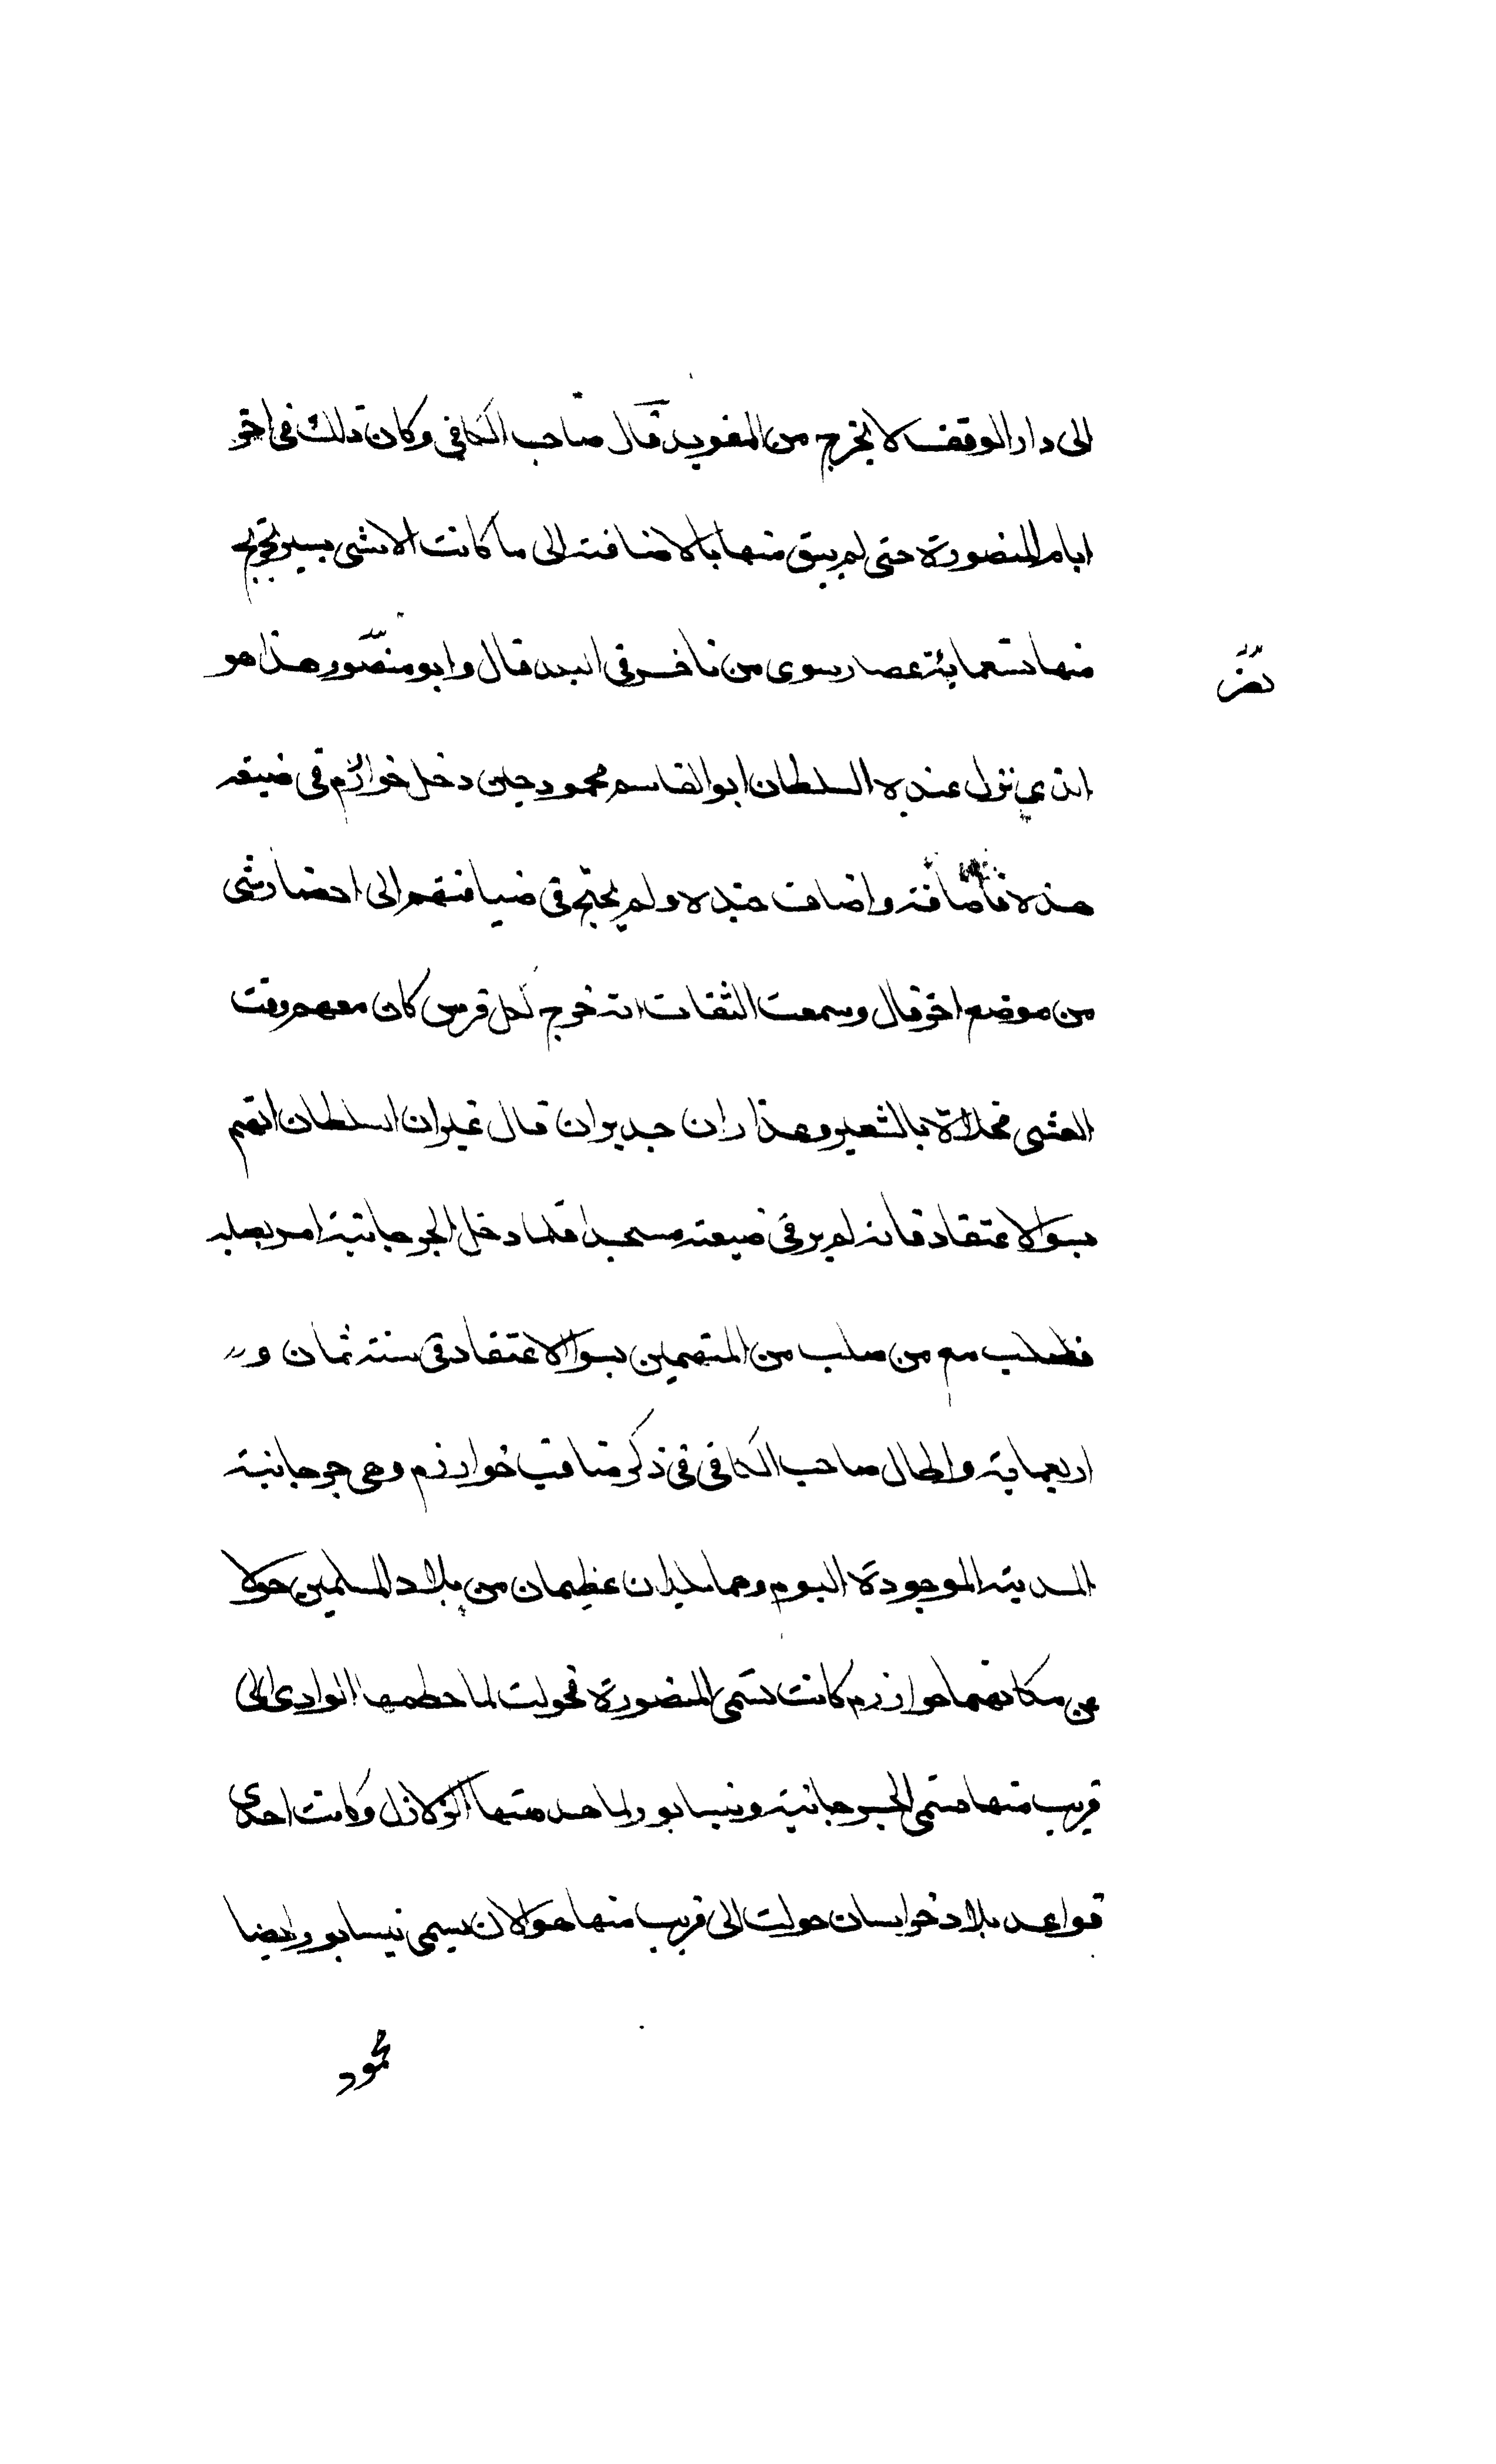 الى دار الوقف لا يخرج من المغويد قال صاحب الكافي وكان ذلك فى اخر
ايام المنصورة حتى لم يبق منها بالاضافة الى ما كانت الا شى يسير يخرج
منها تسعماية عصار سوى من تاخر فى البيد قال وابو منصور هذا هو
الذي نزل عنده السلطان ابو القاسم محمود حين دخل خوارزم فى ضيعة
هذه فاضافه واضاف جنده ولم يحتج فى ضيافتهم الى احضار شى
من موضع اخر قال وسمعت الثقات انه خرج لكل فرس كان معهم وقت
العشى مخلاة بالشعير وهذا ران جديران قال غير ان السلطان اتهم
بسوالاعتقاد فانه لم ير فى ضيعته مسجدا فلما دخل الجرجانية امر بصلبه
فصلب مع من صلب من المتهمين بسوالاعتقاد فى سنة ثمان و
اربعماية واطال صاحب الكافى فى ذكر مناقب خوارزم وهى جرجانية
المدينة الموجودة اليوم وهما بلدان عظيمان من بلاد المسلمين حولا
عن مكانهما خوارزم كانت تسمى المنصورة فحولت لما حطمها الوادى الى
قريب منها تسمى الجرجانية ونيسابور لما هدمتها الزلازل وكانت احدى
قواعد بلاد خراسان حولت الى قريب منها هوالان يسمى نيسابور وايضا
محمود